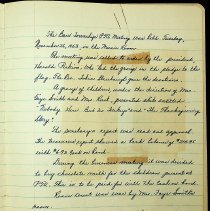 The Bani Township P.T.A. Meeting was held Tuesday,
November 26, 1963, in the Music Room.
The meeting was called to order by the president,
Harold Perkins. Who led the group in the pledge to the
flag. The Rev. gave the devotions.
A group of children under the direction of Mrs.
Faye Smith and Mrs. presented skits entitled
"Nobody Here But Us Turkeys" and "The Thanksgiving
Story".
The secretary's report was read and approved.
The treasurer's report showed a bank balance
with on hand.
During the business meeting it was decided
to buy chocolate milk for the children present at
P.T.A. This is to be paid for with the cash on hand.
Room count was won by Mrs. Faye Smith's
room.